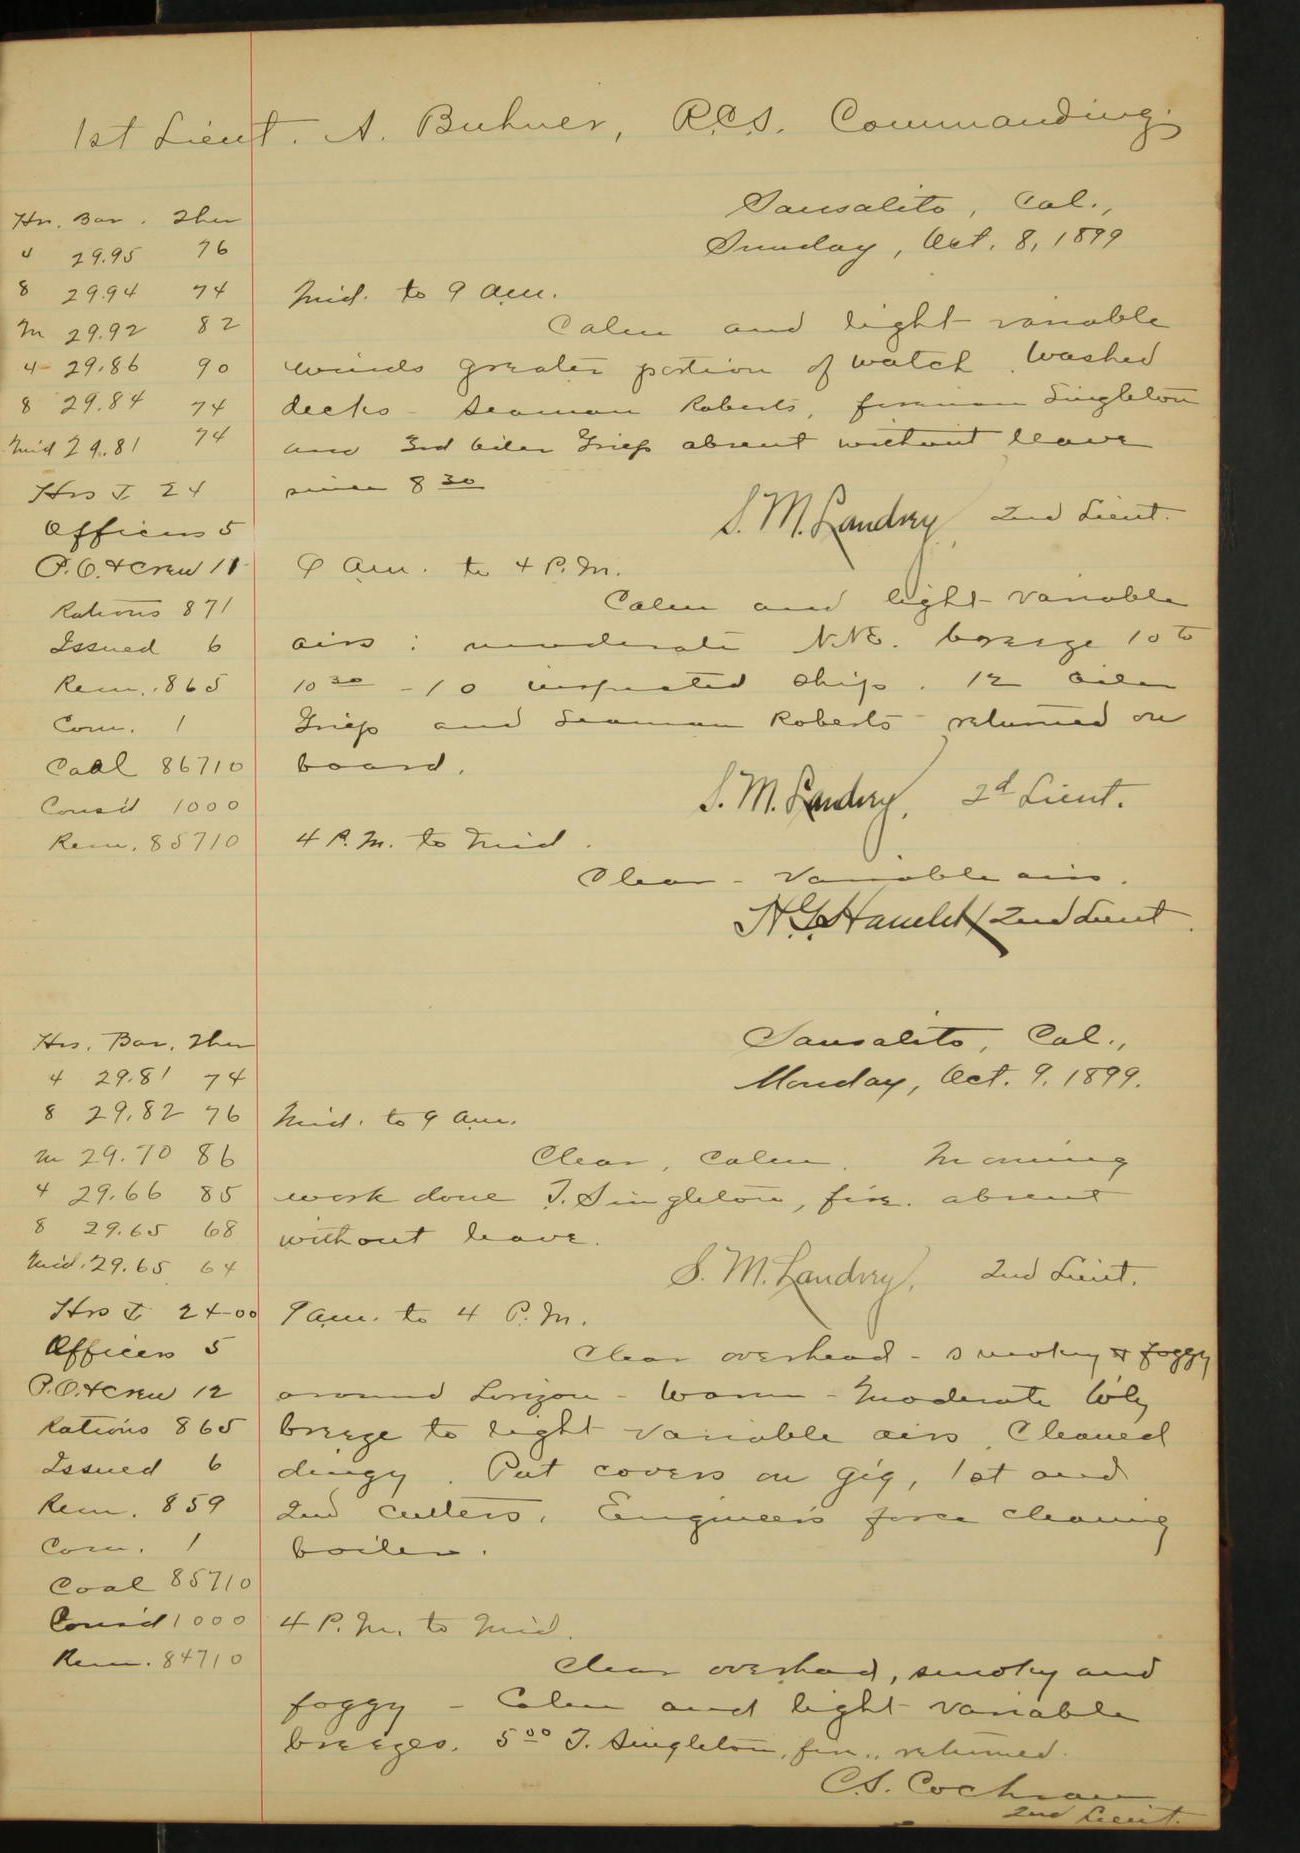 1st Lieut. A. Buhner, R.C.S. Commanding;
Sausalito, Cal.,
Sunday, Oct. 8, 1899
Hrs. Bar. Ther
4 29.95 76
8 29.94 74
M 29.92 82
4 29.86 90
8 29.84 74
Mid 29.81 74
Hrs I 24
Officers 5
P.O. & Crew 11
Rations 871
Issued 6
Rem. 865
Com. 1
Coal 86710
Cons'd 1000
Rem. 85710
Mid. to 9 am.
Calm and light variable
winds greater portion of watch. Washed
decks - Seaman Roberts, fireman Singleton
and 3rd Oiler Griep absent without leave
since 8 30
S. M. Landrey, 2nd Lieut.
9 am. to 4 P.M.
Calm and light variable
airs: moderate N.N.E. breeze 10 to
10 30 - 10 inspected ship. 12 Oiler
Griep and Seaman Roberts returned on
board.
S. M. Landrey, 2d Lieut.
4 P.M. to Mid.
Clear - Variable airs.
H.G. Hamlet 2nd Lieut.
Sausalito, Cal.,
Monday, Oct. 9. 1899.
Hrs. Bar. Ther
4 29.81 74
8 29.82 76
M 29.70 86
4 29.66 85
8 29.65 68
Mid. 29.65 64
Hrs I 24-00
Officers 5
P.O. & Crew 12
Rations 865
Issued 6
Rem. 859
Com. 1
Coal 85710
Cons'd 1000
Rem. 84710
Mid. to 9 am.
Clear, calm. Morning
work done T. Singleton, fire. absent
without leave.
S. M. Landrey, 2nd Lieut.
9 am. to 4 P.M.
Clear overhead - smoky & foggy
around horizon - Warm - Moderate W'ly
breeze to light variable airs. Cleaned
dingy. Put covers on gig, 1st and
2nd cutters. Engineer's force cleaning
boiler.
4 P.M. to Mid.
Clear overhead, smoky and
foggy - Calm and light variable
breezes. 5 00 T. Singleton, fm., returned.
C.S. Cochran
2nd Lieut.